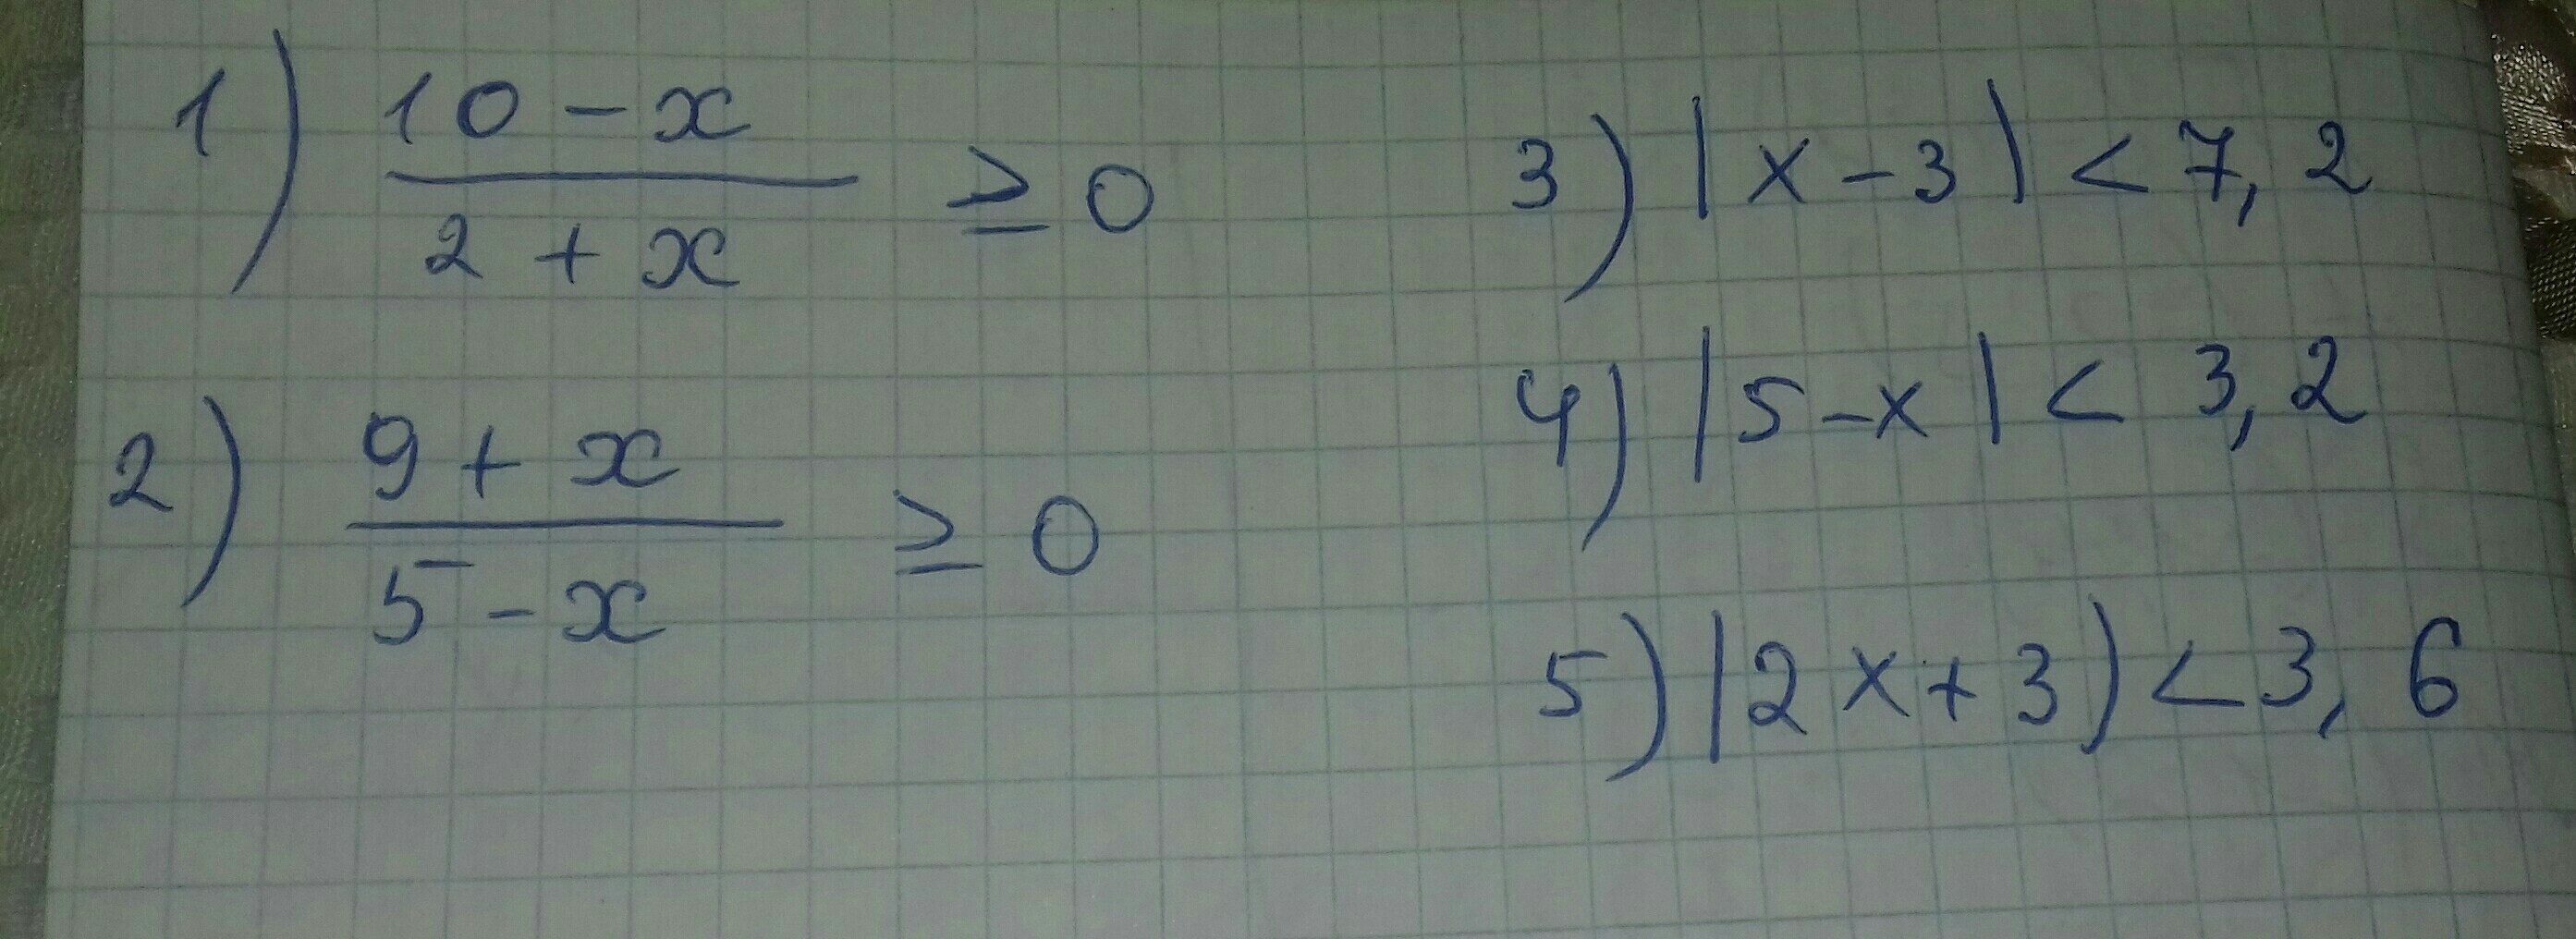 1) (10 - x)/(2 + x) ≥ 0
2) (9 + x)/(5 - x) ≥ 0
3) |x - 3| < 7,2
4) |5 - x| < 3,2
5) |2x + 3| < 3,6